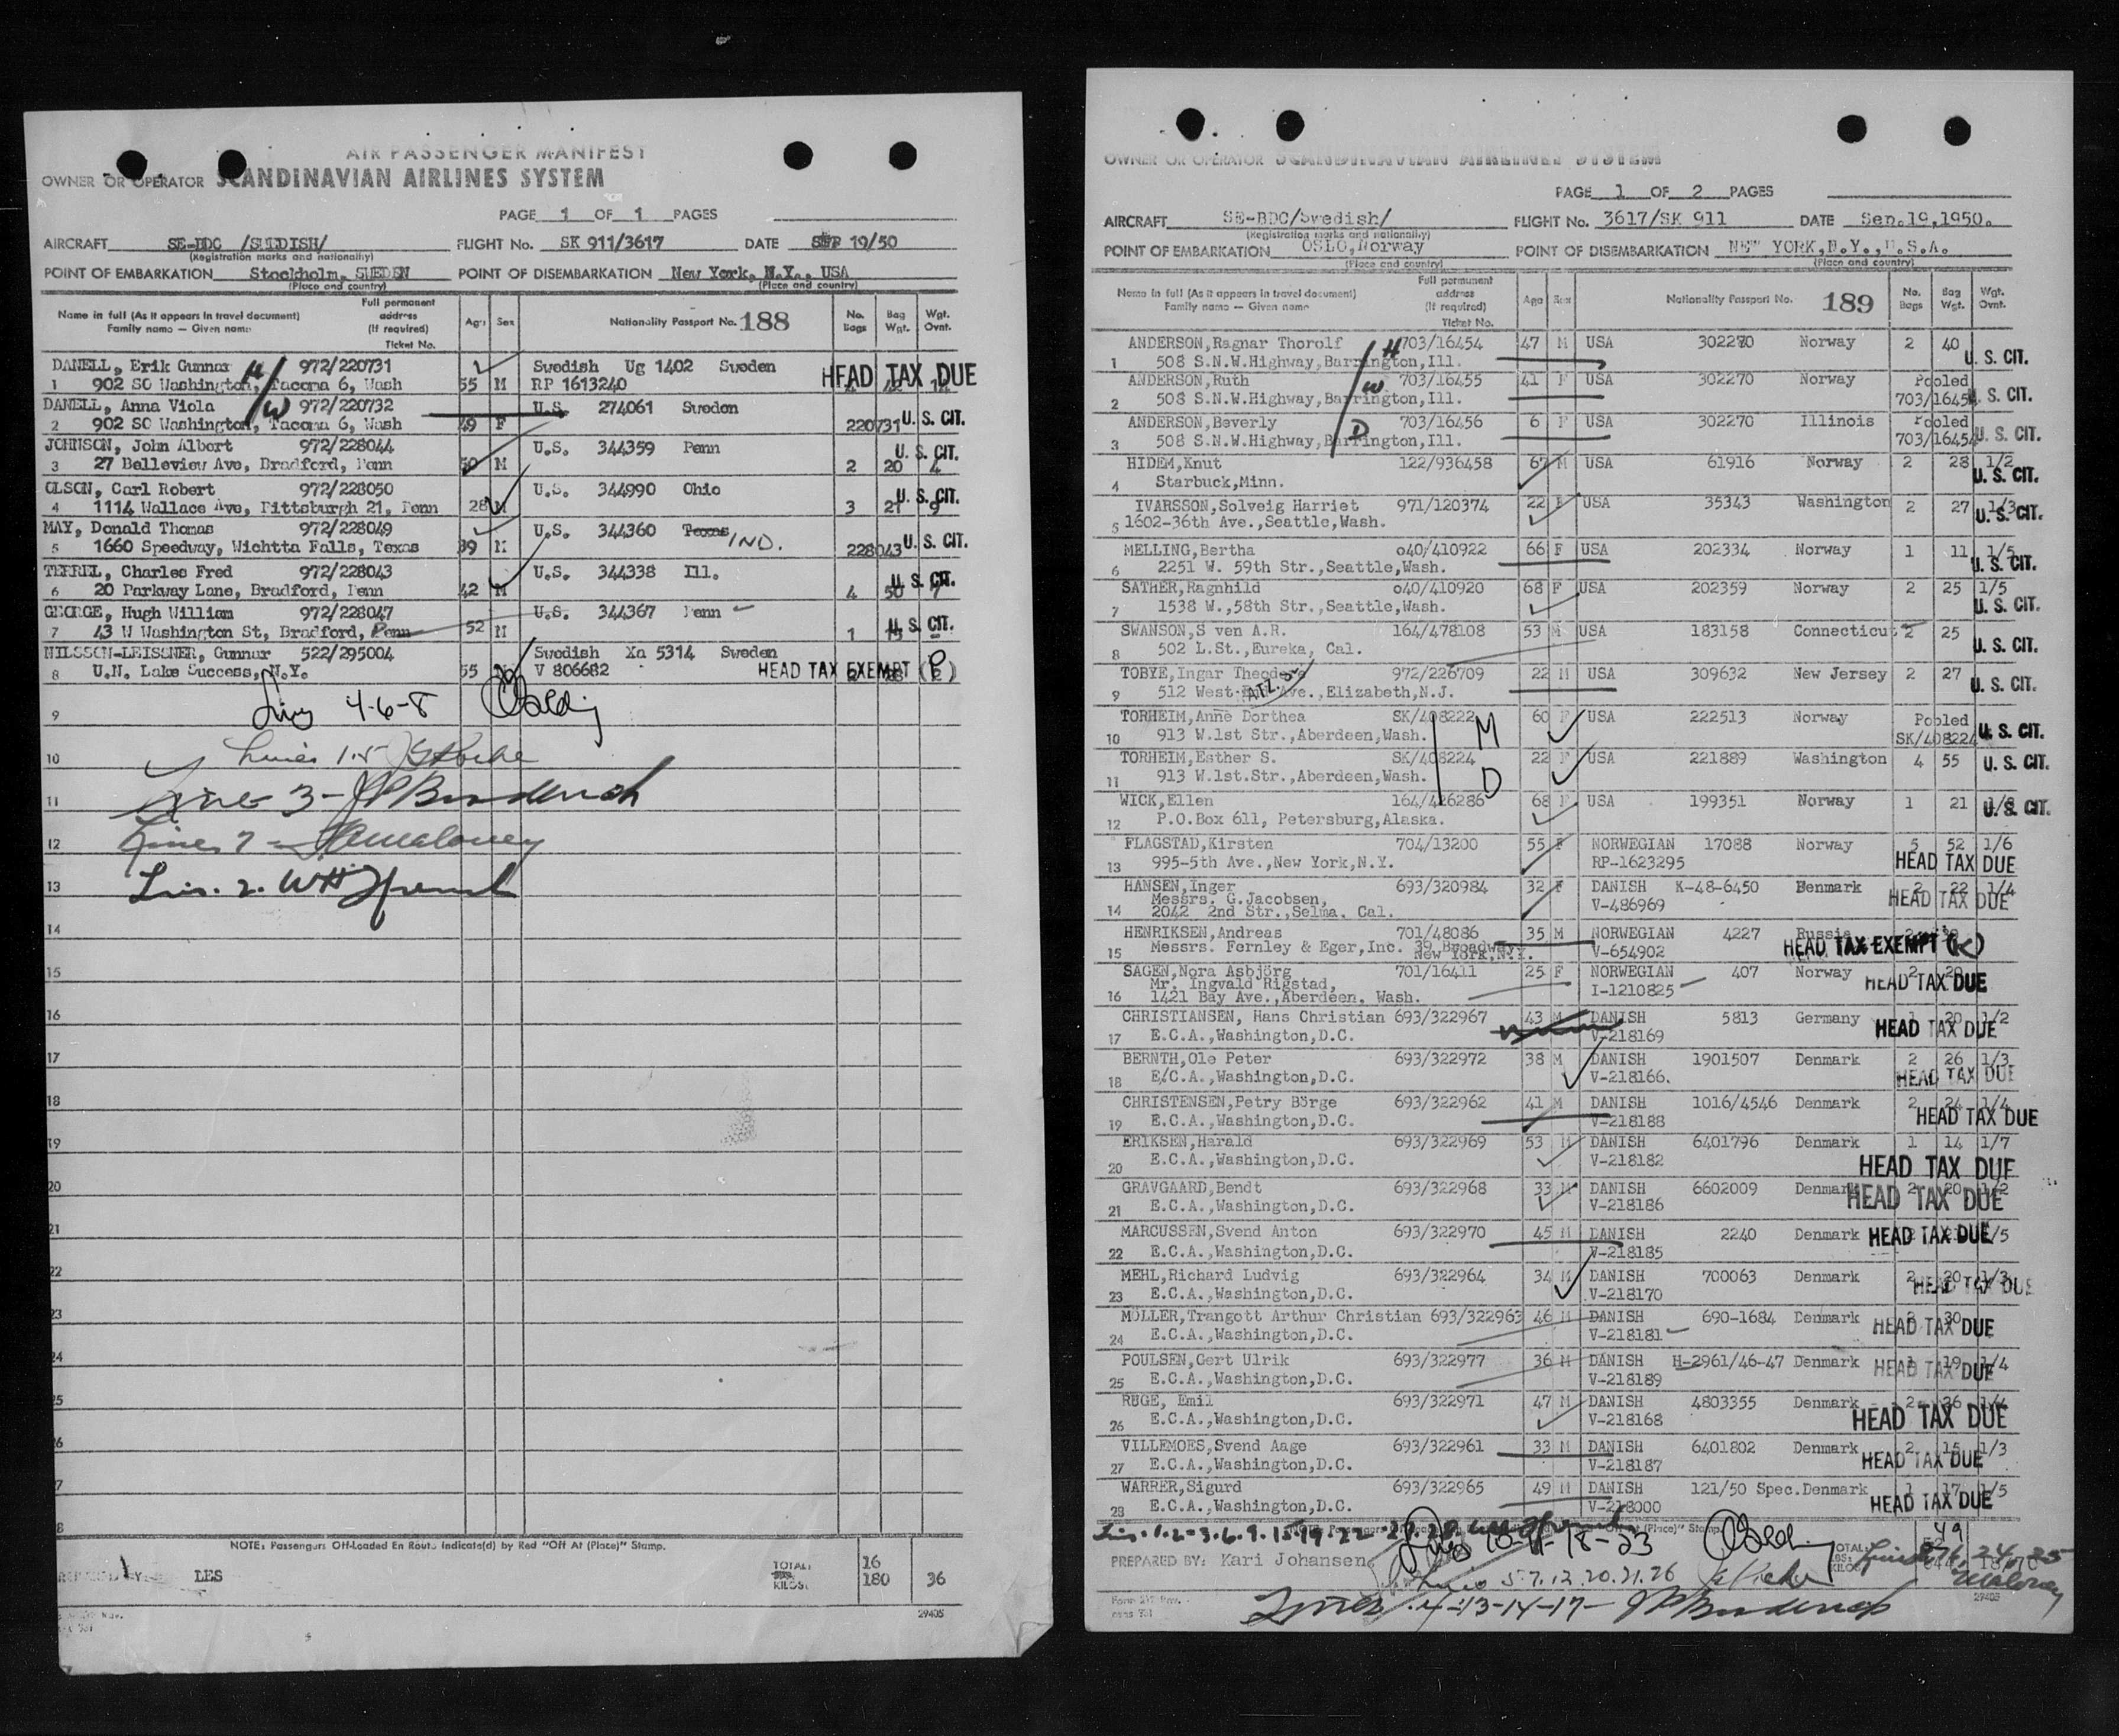 AIR PASSENGER MANIFEST
OWNER OR OPERATOR SCANDINAVIAN AIRLINES SYSTEM
PAGE 1 OF 1 PAGES
AIRCRAFT SE-BDC /SUEDISH/ FLIGHT No. SK 911/3617 DATE SEP 19/50
(Registration marks and nationality)
POINT OF EMBARKATION Stockholm, SWEDEN POINT OF DISEMBARKATION New York, N.Y., USA
(Place and country) (Place and country)
Name in full (As it appears in travel document) Family name — Given name Full permanent address (If required) Ticket No. Age Sex Nationality Passport No. 188 No. Bags Bag Wgt. Wgt. Ovnt.
DANELL, Erik Gunnar H 972/220731 Swedish Ug 1402 Sweden
1 902 SO Washington, Tacoma 6, Wash 55 M RP 1613240 HEAD TAX DUE
DANELL, Anna Viola W 972/220732 U.S. 274061 Sweden
2 902 SO Washington, Tacoma 6, Wash 49 F 220731 U. S. CIT.
JOHNSON, John Albert 972/228044 U.S. 344359 Penn U. S. CIT.
3 27 Belleview Ave, Bradford, Penn 50 M 2 20 4
OLSON, Carl Robert 972/228050 U.S. 344990 Ohio
4 1114 Wallace Ave, Pittsburgh 21, Penn 28 M 3 21 9 U. S. CIT.
MAY, Donald Thomas 972/228049 U.S. 344360 Texas IND.
5 1660 Speedway, Wichtta Falls, Texas 39 M 228043 U. S. CIT.
TERREL, Charles Fred 972/228043 U.S. 344338 Ill.
6 20 Parkway Lane, Bradford, Penn 42 M 4 50 7 U. S. CIT.
GEORGE, Hugh William 972/228047 U.S. 344367 Penn
7 43 W Washington St, Bradford, Penn 52 M 1 U. S. CIT.
NILSSON-LEISSNER, Gunnar 522/295004 Swedish Xa 5314 Sweden
8 U.N. Lake Success, N.Y. 55 M V 806682 HEAD TAX EXEMPT (P)
9 4-6-8
10 Lines 1.5
11 Line 3 - JP Broderick
12 Lines 7 - Maloney
13 Lin. 2. WH French
14
15
16
17
18
19
20
21
22
23
24
25
26
7
8
NOTE: Passengers Off-Loaded En Route Indicate(d) by Red "Off At (Place)" Stamp.
LES TOTAL: 16
KILOS: 180 36
29405
OWNER OR OPERATOR SCANDINAVIAN AIRLINES SYSTEM
PAGE 1 OF 2 PAGES
AIRCRAFT SE-BDC/Swedish/ FLIGHT No. 3617/SK 911 DATE Sep.19,1950.
(Registration marks and nationality)
POINT OF EMBARKATION OSLO,Norway POINT OF DISEMBARKATION NEW YORK,N.Y.,U.S.A.
(Place and country) (Place and country)
Name in full (As it appears in travel document) Family name — Given name Full permanent address (If required) Ticket No. Age Sex Nationality Passport No. 189 No. Bags Bag Wgt. Wgt. Ovnt.
ANDERSON,Ragnar Thorolf H 703/16454 47 M USA 302270 Norway 2 40
1 508 S.N.W.Highway,Barrington,Ill. U. S. CIT.
ANDERSON,Ruth W 703/16455 41 F USA 302270 Norway Pooled
2 508 S.N.W.Highway,Barrington,Ill. 703/16454 U. S. CIT.
ANDERSON,Beverly D 703/16456 6 F USA 302270 Illinois Pooled
3 508 S.N.W.Highway,Barrington,Ill. 703/16454 U. S. CIT.
HIDEM,Knut 122/936458 67 M USA 61916 Norway 2 28 1/2
4 Starbuck,Minn. U. S. CIT.
IVARSSON,Solveig Harriet 971/120374 22 F USA 35343 Washington 2 27 1/3
5 1602-36th Ave.,Seattle,Wash. U. S. CIT.
MELLING,Bertha o40/410922 66 F USA 202334 Norway 1 11 1/5
6 2251 W. 59th Str.,Seattle,Wash. U. S. CIT.
SATHER,Ragnhild o40/410920 68 F USA 202359 Norway 2 25 1/5
7 1538 W.,58th Str.,Seattle,Wash. U. S. CIT.
SWANSON,S ven A.R. 164/478108 53 M USA 183158 Connecticut 2 25
8 502 L.St.,Eureka, Cal. U. S. CIT.
TOBYE,Ingar Theodore 972/226709 22 M USA 309632 New Jersey 2 27
9 512 West Ave.,Elizabeth,N.J. U. S. CIT.
TORHEIM,Anne Dorthea SK/408222 M 60 F USA 222513 Norway Pooled
10 913 W.1st Str.,Aberdeen,Wash. SK/408224 U. S. CIT.
TORHEIM,Esther S. SK/408224 22 F USA 221889 Washington 4 55 U. S. CIT.
11 913 W.1st.Str.,Aberdeen,Wash. D
WICK,Ellen 164/426286 68 F USA 199351 Norway 1 21 U. S. CIT.
12 P.O.Box 611, Petersburg,Alaska.
FLAGSTAD,Kirsten 704/13200 55 F NORWEGIAN 17088 Norway 5 52 1/6
13 995-5th Ave.,New York,N.Y. RP-1623295 HEAD TAX DUE
HANSEN,Inger 693/320984 32 F DANISH K-48-6450 Denmark 2 22 1/4
Messrs. G.Jacobsen, V-486969 HEAD TAX DUE
14 2042 2nd Str.,Selma. Cal.
HENRIKSEN,Andreas 701/48086 35 M NORWEGIAN 4227 Russia
15 Messrs. Fernley & Eger,Inc. 39 Broadway, New York,N.Y. V-654902 HEAD TAX EXEMPT (K)
SAGEN,Nora Asbjörg 701/16411 25 F NORWEGIAN 407 Norway 2 20
Mr. Ingvald Rigstad, I-1210825 HEAD TAX DUE
16 1421 Bay Ave.,Aberdeen. Wash.
CHRISTIANSEN, Hans Christian 693/322967 43 M DANISH 5813 Germany 1 20 1/2
17 E.C.A.,Washington,D.C. V-218169 HEAD TAX DUE
BERNTH,Ole Peter 693/322972 38 M DANISH 1901507 Denmark 2 26 1/3
18 E/C.A.,Washington,D.C. V-218166. HEAD TAX DUE
CHRISTENSEN,Petry Börge 693/322962 41 M DANISH 1016/4546 Denmark 2 24 1/4
19 E.C.A.,Washington,D.C. V-218188 HEAD TAX DUE
ERIKSEN,Harald 693/322969 53 M DANISH 6401796 Denmark 1 14 1/7
20 E.C.A.,Washington,D.C. V-218182 HEAD TAX DUE
GRAVGAARD,Bendt 693/322968 33 M DANISH 6602009 Denmark 2 20 1/2
21 E.C.A.,Washington,D.C. V-218186 HEAD TAX DUE
MARCUSSEN,Svend Anton 693/322970 45 M DANISH 2240 Denmark HEAD TAX DUE /5
22 E.C.A.,Washington,D.C. V-218185
MEHL,Richard Ludvig 693/322964 34 M DANISH 700063 Denmark 2 20 1/3
23 E.C.A.,Washington,D.C. V-218170 HEAD TAX DUE
MÖLLER,Trangott Arthur Christian 693/322963 46 M DANISH 690-1684 Denmark 30
24 E.C.A.,Washington,D.C. V-218181 HEAD TAX DUE
POULSEN,Gert Ulrik 693/322977 36 M DANISH H-2961/46-47 Denmark 1 19 1/4
25 E.C.A.,Washington,D.C. V-218189 HEAD TAX DUE
RUGE, Emil 693/322971 47 M DANISH 4803355 Denmark 2 36 1/4
26 E.C.A.,Washington,D.C. V-218168 HEAD TAX DUE
VILLEMOES,Svend Aage 693/322961 33 M DANISH 6401802 Denmark 2 15 1/3
27 E.C.A.,Washington,D.C. V-218187 HEAD TAX DUE
WARRER,Sigurd 693/322965 49 M DANISH 121/50 Spec.Denmark 1 17 1/5
28 E.C.A.,Washington,D.C. V-218000 HEAD TAX DUE
Lin. 1-2-3.6.9.15.19-22-27.28. WH French
Off At (Place)" Stamp.
Lines 10-11-18-23
PREPARED BY: Kari Johansen
TOTAL: 49
Lines 5.7.12.20.21.26
Maloney
Lines 4-13-14-17- JP Broderick
29405